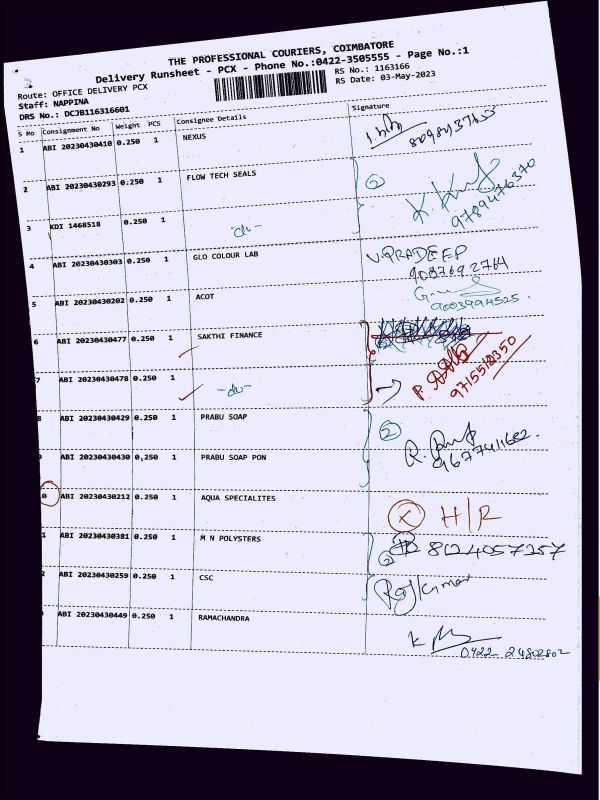 THE PROFESSIONAL COURIERS, COIMBATORE
Delivery Runsheet - PCX - Phone No.:0422-3505555 - Page No.:1
Route: OFFICE DELIVERY PCX
RS No.: 1163166
Staff: NAPPINA
RS Date: 03-May-2023
DRS No.: DCJB116316601
S No Consignment No Weight PCS Consignee Details Signature
1 ABI 20230430410 0.250 1 NEXUS
2 ABI 20230430293 0.250 1 FLOW TECH SEALS 2
9789476370
3 KDI 1468518 0.250 1 -do-
4 ABI 20230430303 0.250 1 GLO COLOUR LAB V.PRADEEP
9087692764
5 ABI 20230430202 0.250 1 ACOT
9003994525
6 ABI 20230430477 0.250 1 SAKTHI FINANCE
7 ABI 20230430478 0.250 1 -do-
8 ABI 20230430429 0.250 1 PRABU SOAP 2
ABI 20230430430 0.250 1 PRABU SOAP PON
9677411682
0 ABI 20230430212 0.250 1 AQUA SPECIALITES X H/R
1 ABI 20230430381 0.250 1 M N POLYSTERS 2 8124057257
2 ABI 20230430259 0.250 1 CSC Rajkumar
ABI 20230430449 0.250 1 RAMACHANDRA
0422 24802802